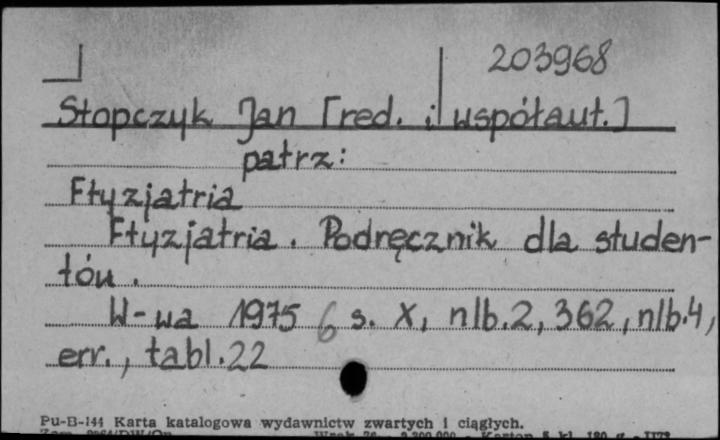 203968
Stopczyk Jan [red. i współaut.]
patrz:
Ftyzjatria
Ftyzjatria. Podręcznik dla studen-
tów.
W-wa 1975 6 s. X, nlb.2, 362, nlb.4,
err., tabl.22
Pu-B-144 Karta katalogowa wydawnictw zwartych i ciągłych.